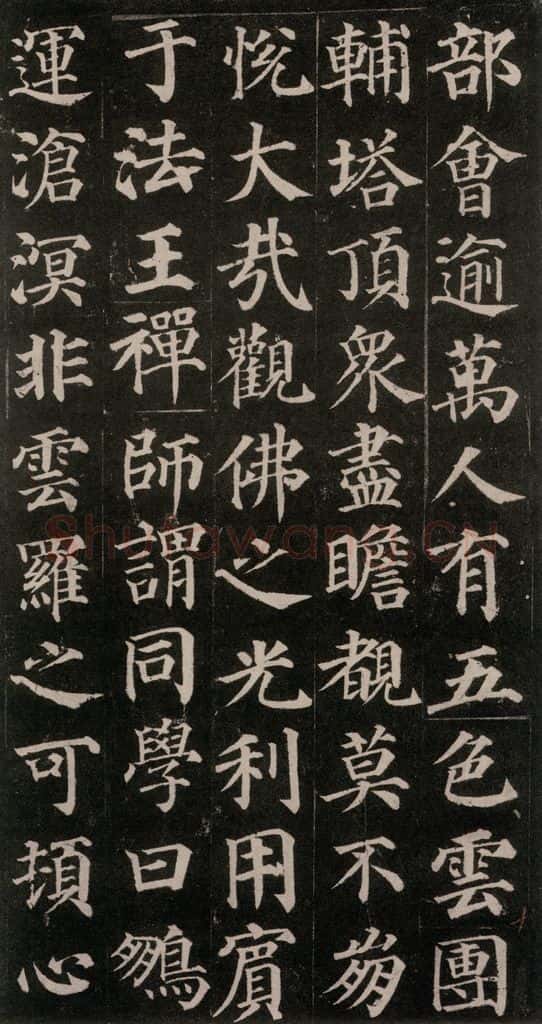 部會逾萬人有五色雲團
輔塔頂眾盡瞻覩莫不崩
悅大哉觀佛之光利用賓
于法王禪師謂同學曰鵬
運滄溟非雲羅之可頓心
Shufawang.CN